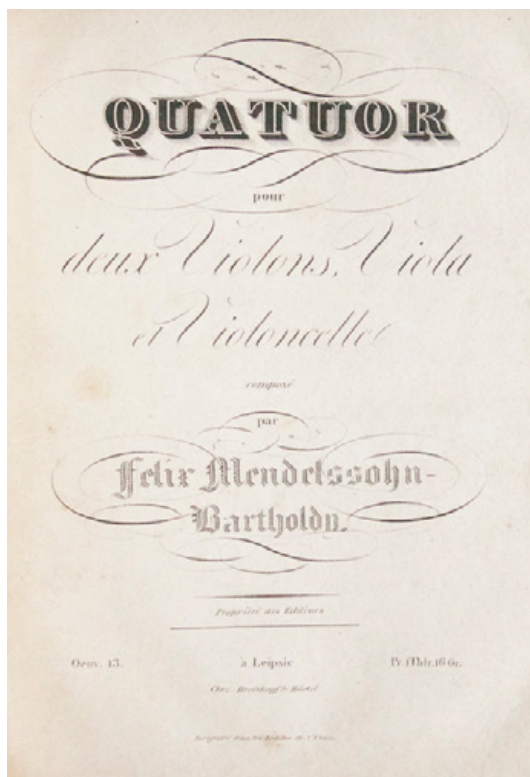 QUATUOR
pour
deux Violons, Viola
et Violoncelle
composé
par
Felix Mendelssohn-
Bartholdy.
Propriété des Editeurs
Oeuv. 13. à Leipsic Pr. 1 Thlr. 16 Gr.
Chez Breitkopf & Härtel